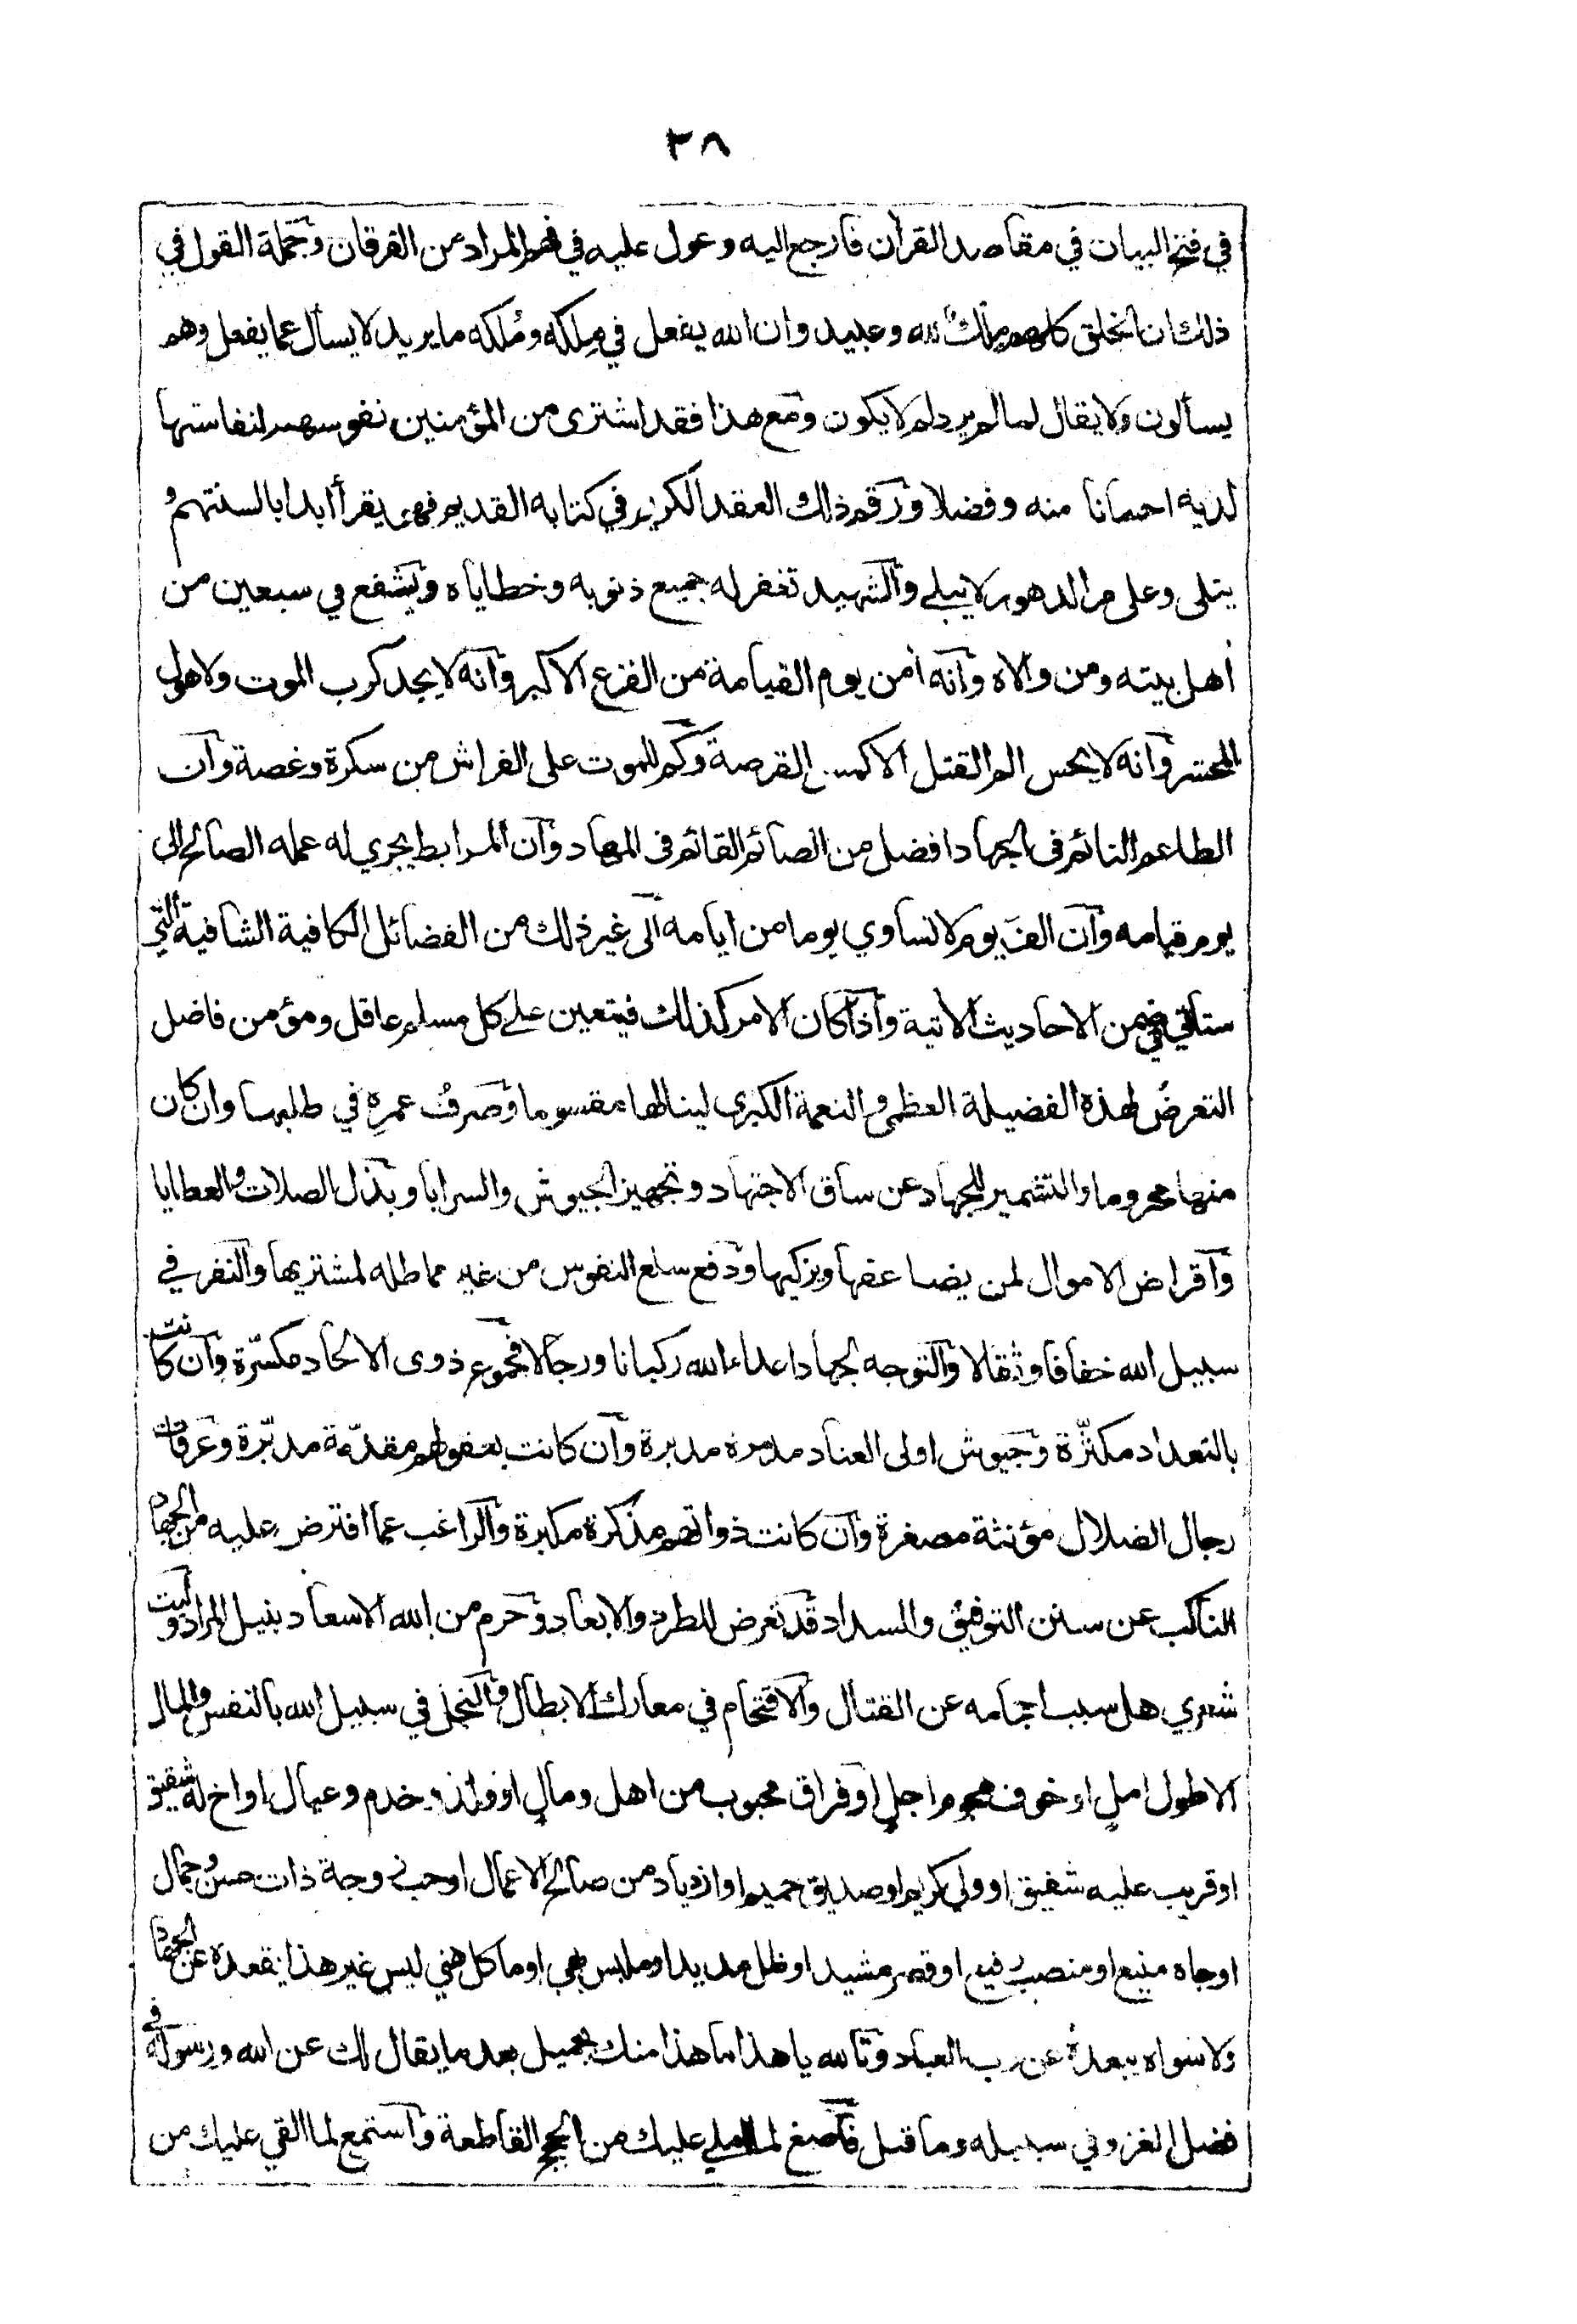 ٣٨
في فتح البيان في مقاصد القرآن فارجع اليه وعول عليه في فهم المراد من الفرقان وجملة القول في
ذلك ان الخلق كلهم ملك لله وعبيد وان الله يفعل في مِلكه ومُلكه ما يريد لا يسأل عما يفعل وهم
يسألون ولا يقال لما لم يرد لم لا يكون ومع هذا فقد اشترى من المؤمنين نفوسهم لنفاستها
لديه احسانا منه وفضلا ورقم ذلك العقد الكريم في كتابه القديم فهو يقرأ ابدا بالسنتهم و
يتلى وعلى مر الدهور لا يبلى والشهيد تغفر له جميع ذنوبه وخطاياه ويشفع في سبعين من
أهل بيته ومن والاه وانه أمن يوم القيامة من الفزع الاكبر وانه لا يجد كرب الموت ولا هول
المحشر وانه لا يحس الم القتل الا كمس القرصة وكم للموت على الفراش من سكرة وغصة وان
الطاعم النائم في الجهاد افضل من الصائم القائم في المهاد وان المرابط يجري له عمله الصالح الى
يوم قيامه وان الف يوم لا تساوي يوما من ايامه الى غير ذلك من الفضائل الكافية الشافية التي
ستأتي في ضمن الاحاديث الأتية واذا كان الامر كذلك فيتعين على كل مسلم عاقل ومؤمن فاضل
التعرضُ لهذه الفضيلة العظمى والنعمة الكبرى لينالها مقسوما وصرفُ عمرِه في طلبها وان كان
منها محروما والتشمير للجهاد عن ساق الاجتهاد وتجهيز الجيوش والسرايا وبذل الصلات والعطايا
واقراض الاموال لمن يضاعفها ويزكيها ودفع سلع النفوس من غير مماطله لمشتريها والنفر في
سبيل الله خفافا وثقالا والتوجه لجهاد اعداء الله ركبانا ورجالا فجموع ذوى الالحاد مكسّرة وان كانت
بالتعداد مكثّرة وجيوش اولى العناد مدمرة مدبرة وان كانت بعقولهم مقدّمة مدبّرة وعزمات
رجال الضلال مؤنثة مصغرة وان كانت ذواتهم مذكرة مكبرة والراغب عما افترض عليه من الجهاد
الناكب عن سنن التوفيق والسداد قد تعرض للطرد والابعاد وحرم من الله الاسعاد بنيل المراد وليت
شعري هل سبب احجامه عن القتال والاقتحام في معارك الابطال والبخل في سبيل الله بالنفس والمال
الا طول امل او خوف هجوم اجل او فراق محبوب من اهل ومال او ولد وخدم وعيال او اخ له شقيق
او قريب عليه شفيق او ولي كريم او صديق حميم او ازدياد من صالح الاعمال او حب زوجة ذات حسن وجمال
او جاه منيع او منصب رفيع او قصر مشيد او ظل مديد او ملبس بهي او ماكل هني ليس غير هذا يقعده عن الجهاد
ولا سواه يبعده عن رب العباد وتالله يا هذا ما هذا منك بجميل بعد ما يقال لك عن الله ورسوله في
فضل الغزو في سبيله وما قيل فاصغ لما املي عليك من الحجج القاطعة واستمع لما القي عليك من